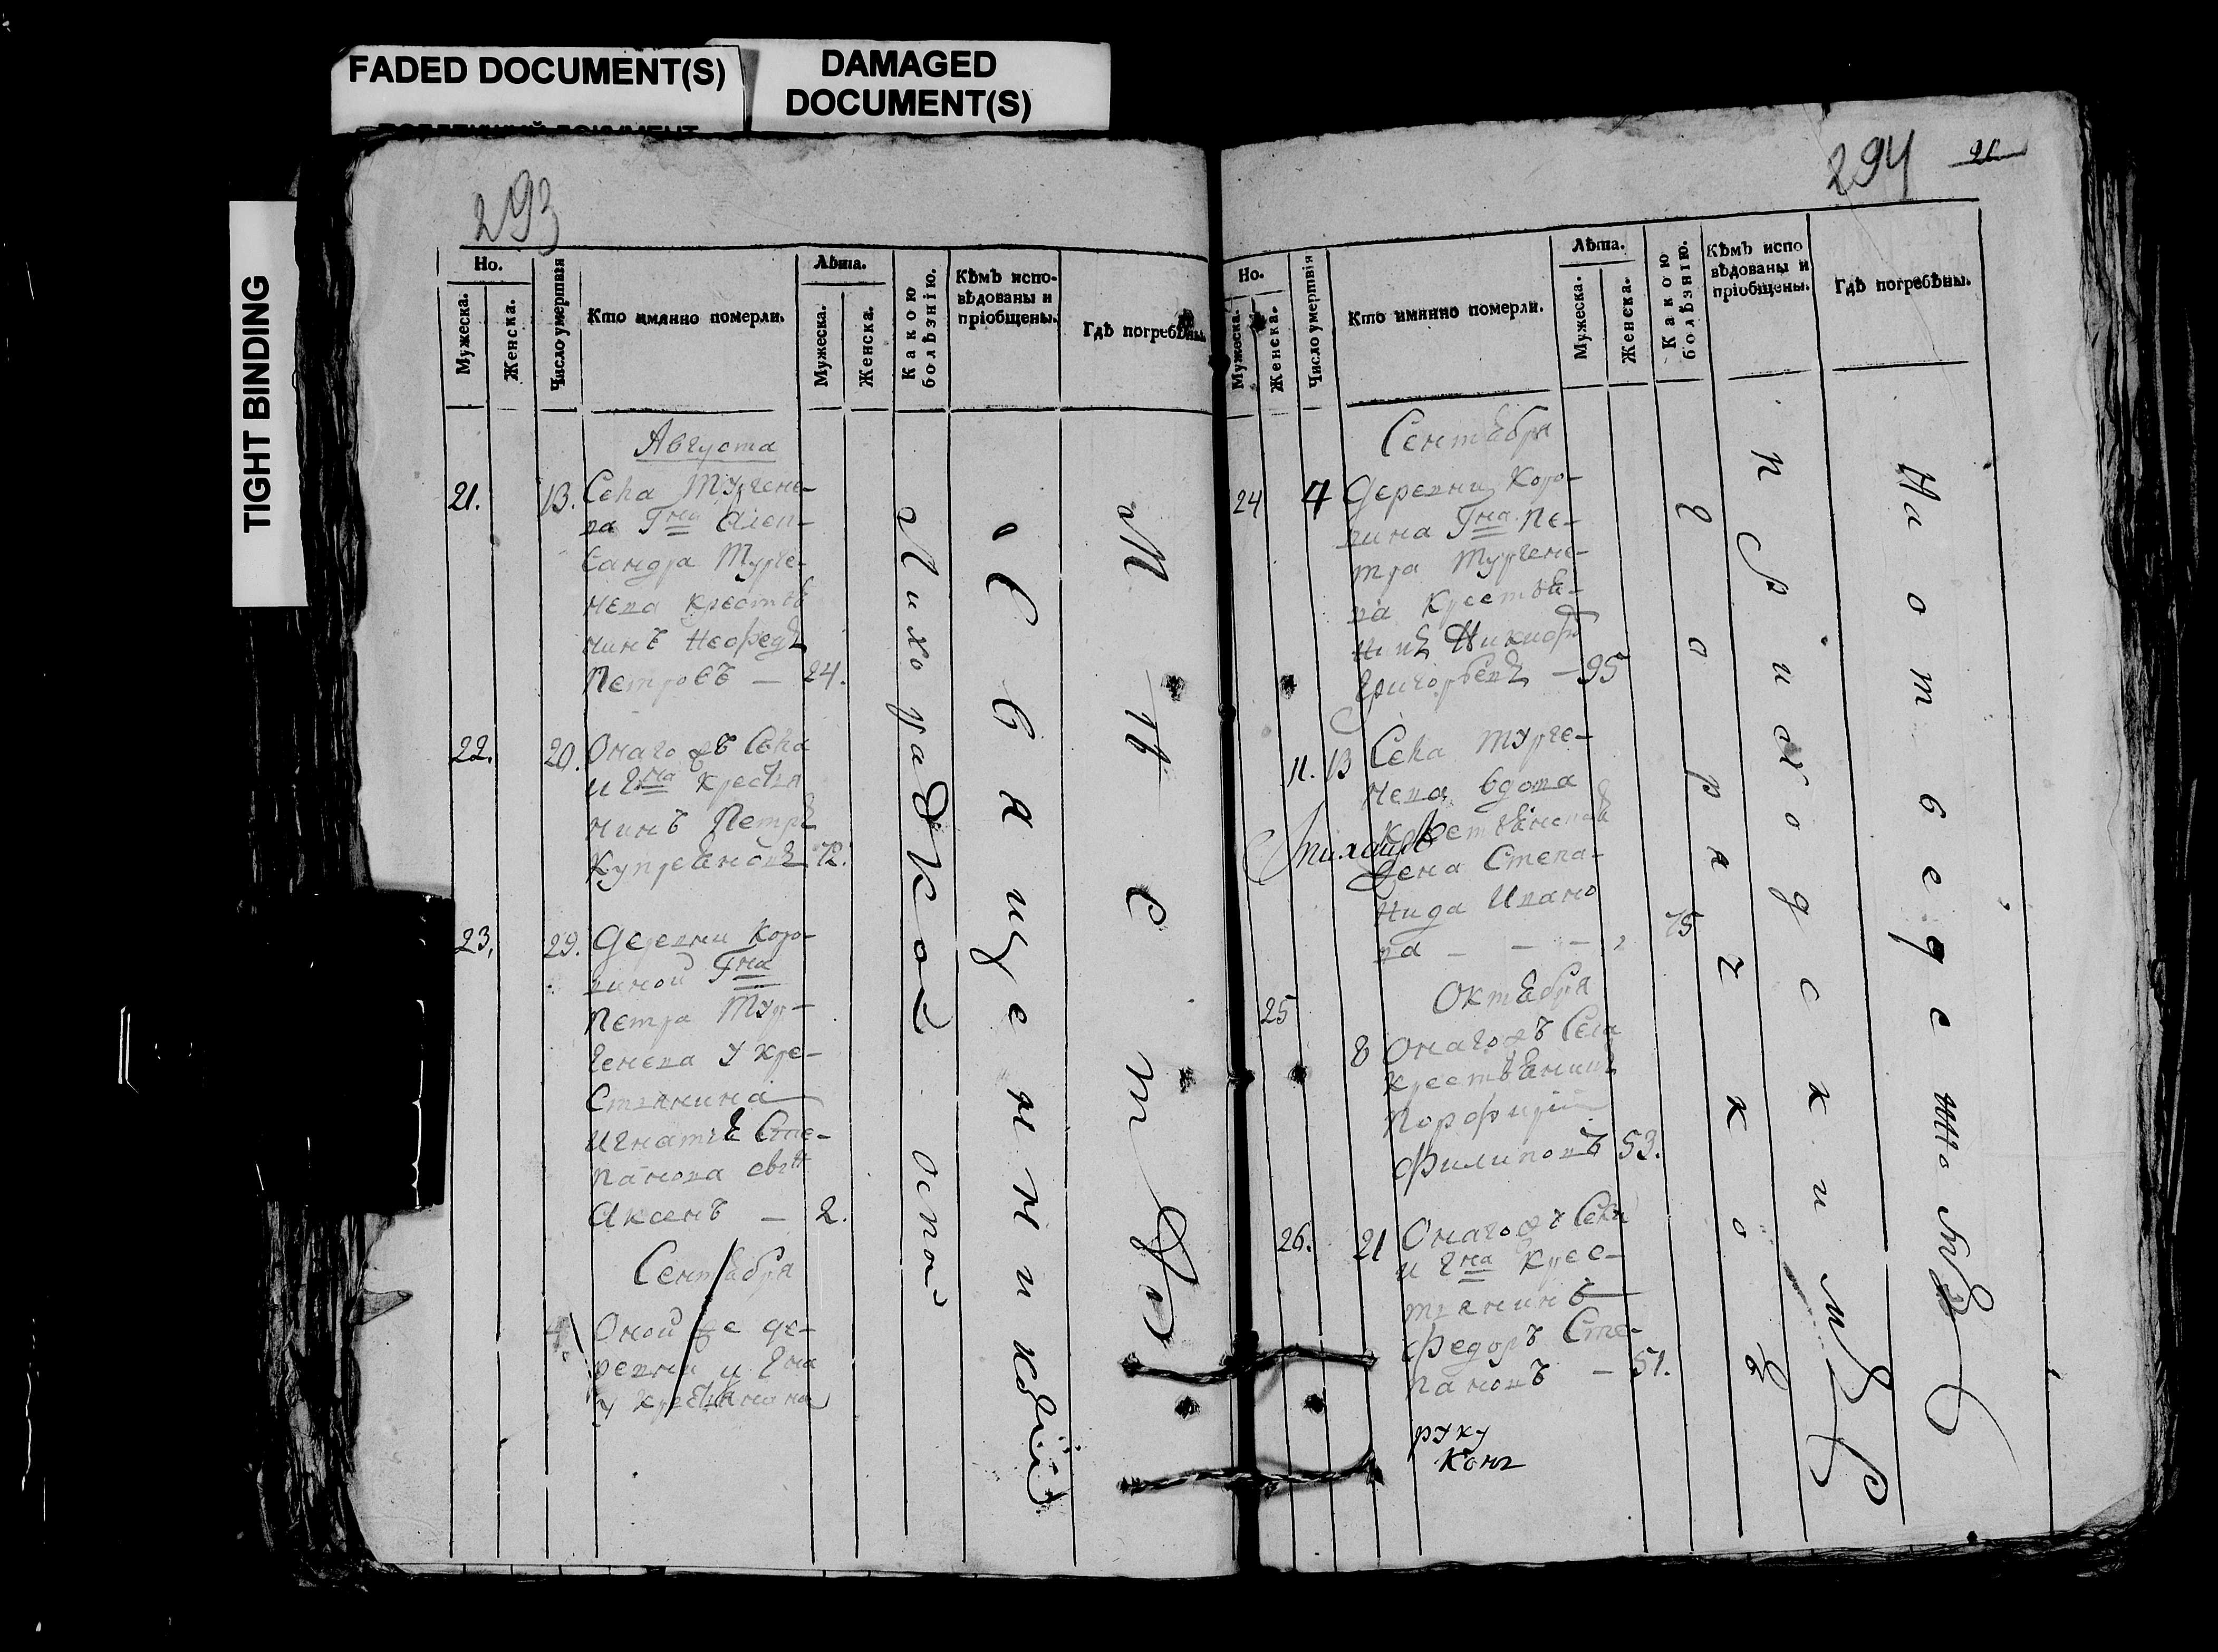 FADED DOCUMENT(S)
DAMAGED
DOCUMENT(S)
TIGHT BINDING
293
Но.
Мужеска.
Женска.
Число умертвія
Кто имянно померли.
Лѣта.
Мужеска.
Женска.
Какою
болѣзнію.
Кѣмъ испо-
вѣдованы и
пріобщены.
Гдѣ погребѣны.
Августа
21. 13. Села Тургене-
ва Гна Алек-
сандра Турге-
нева крестья
нинъ Нефедъ
Петровъ — 24.
22. 20. Онагожъ Села
и Гна Крестья
нинъ Петръ
Купреяновъ 72.
23. 29. Деревни Коро-
виной Гна
Петра Тур-
генева у кре-
стьянина
Игнатья Сте-
панова сынъ
Аксенъ — 2.
Сентября
4. Оной же де-
ревни и Гна
у крестьянина
Лихорадкой
оспой
Священникомъ
294
Но.
Мужеска.
Женска.
Число умертвія
Кто имянно померли.
Лѣта.
Мужеска.
Женска.
Какою
болѣзнію.
Кѣмъ испо
вѣдованы и
пріобщены.
Гдѣ погребѣны.
Сентября
24 7 Деревни Коро-
вина Гна Пе-
тра Тургене-
ва крестья-
нинъ Никифоръ
Григорьевъ — 95
11. 13 Села Турге-
нева вдова
крестьянская
жена Степа-
нида Ивано
ва — — , 75
25 Октября
8 Онагожъ Села
крестьянинъ
Порфирій
Филиповъ 53.
26. 21 Онагожъ Села
и Гна крес-
тьянинъ
Федоръ Сте-
пановъ — 51.
руку
Приходскимъ
На отведенномъ